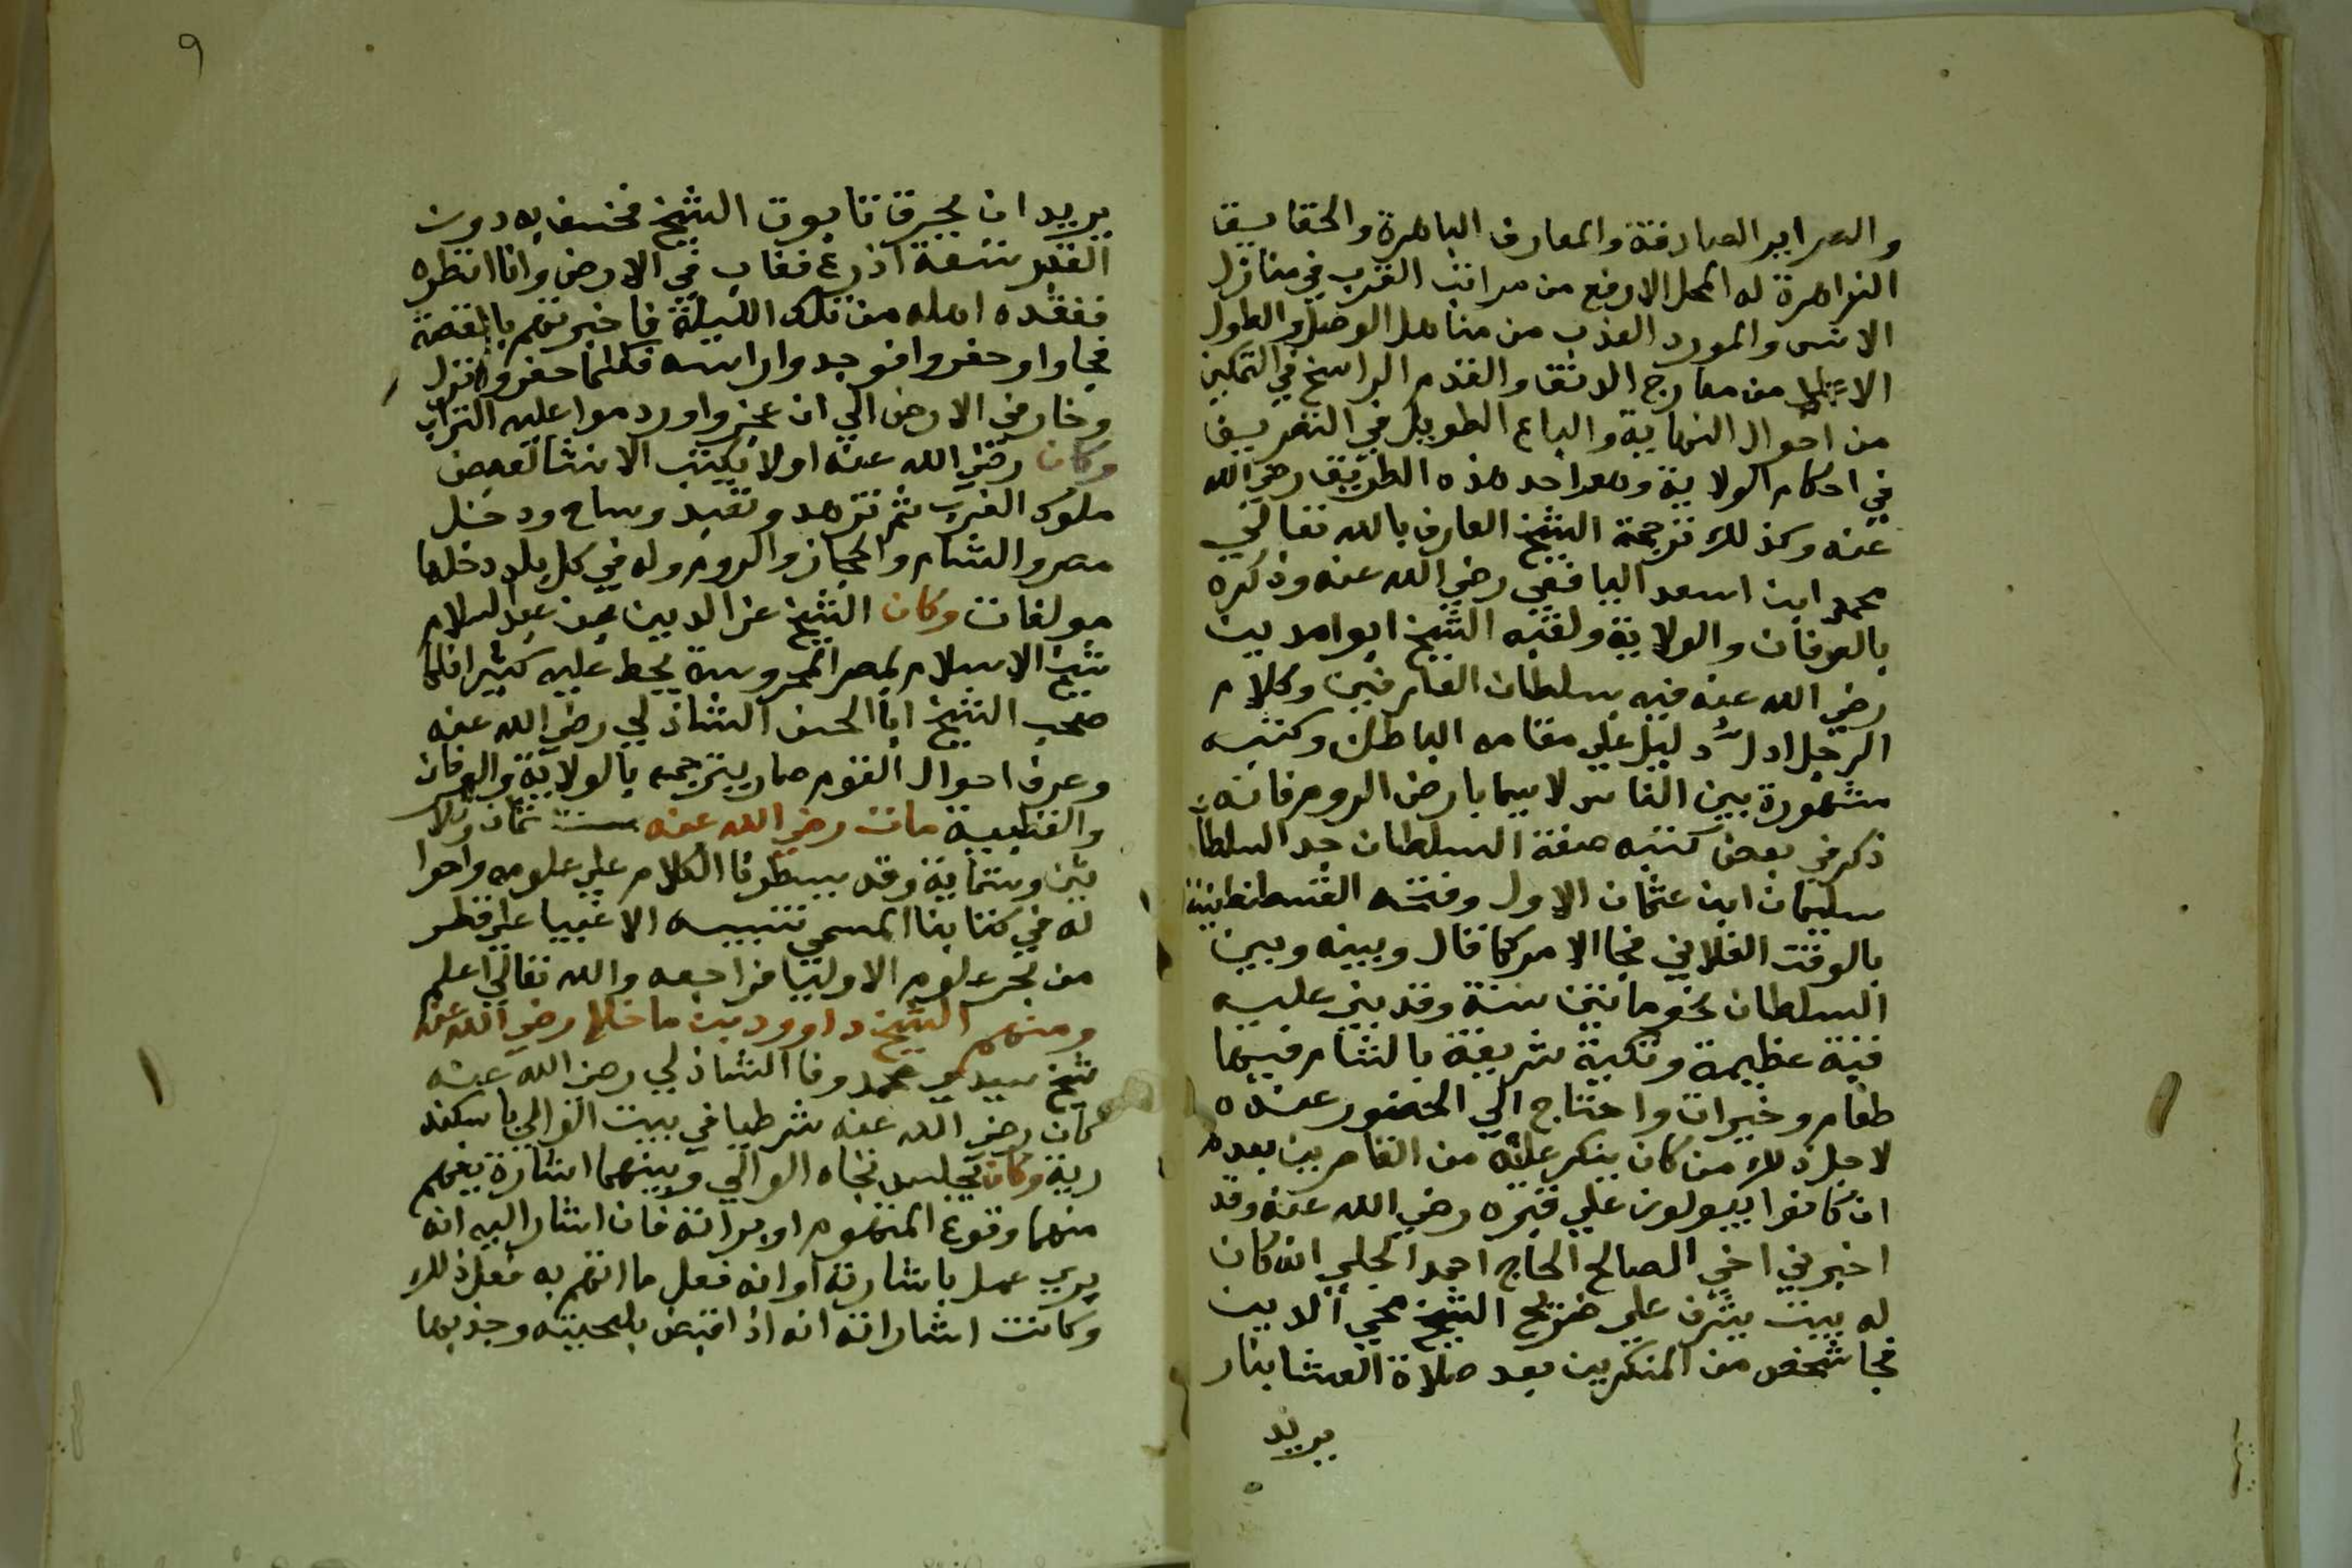 والصراير الصادقة والمعارف الباهرة والحقايق
الزاهرة له المحل الارفع من مراتب القرب في منازل
الانس والمورد العذب من مناهل الوصل والطول
الاعلا من معارج الدنو والقدم الراسخ في التمكين
من احوال النهاية والباع الطويل في التصريف
في احكام الولاية وهو احد هذه الطريق رضي الله
عنه وكذلك ترجمة الشيخ العارف بالله تعالي
محمد ابن اسعد اليافعي رضي الله عنه وذكره
بالعرفان والولاية ولقبه الشيخ ابوا مدين
رضي الله عنه فيه سلطان العارفين وكلام
الرجل ادل دليل علي مقامه الباطن وكتبه
مشهورة بين الناس لاسيما بارض الروم فانه
ذكر في بعض كتبه صفة السلطان جد السلطان
سليمان ابن عثمان الاول وفتحه القسطنطينية
بالوقت الفلاني فجا الامر كما قال وبينه وبين
السلطان نحو مايتين سنة وقد بني عليه
قبة عظيمة وتكية شريفة بالشام فيها
طعام وخيرات واحتاج الي الحضور عنده
لاجل ذلك من كان ينكر عليه من القاصرين بعدم
ان كانوا يبولون علي قبره رضي الله عنه وقد
اخبرني اخي الصالح الحاج احمد الحلبي انه كان
له بيت يشرف علي ضريح الشيخ محي الدين
فجا شخص من المنكرين بعد صلاة العشا بنار
يريد
٩
يريد ان يحرق تابوت الشيخ فخسف به دون
القبر تسعة اذرع فغاب في الارض وانا انظره
ففقده اهله من تلك الليلة فاخبرتهم بالقصة
فجاوا وحفروا فوجدوا راسه فكلما حفروا نزل
وغار في الارض الي ان عجزوا وردموا عليه التراب
وكان رضي الله عنه اولا يكتب الانشا لبعض
ملوك الغرب ثم تزهد وتعبد وساح ودخل
مصر والشام والحجاز والروم وله في كل بلد دخلها
مولفات وكان الشيخ عز الدين بن عبد السلام
شيخ الاسلام بمصر المحروسة يحط عليه كثيرا فلما
صحب الشيخ ابا الحسن الشاذلي رضي الله عنه
وعرف احوال القوم صار يترجمه بالولاية والعرفان
والقطبية مات رضي الله عنه سنة ثمان وثلا
ثين وستماية وقد سطرنا الكلام علي علومه واحوا
له في كتابنا المسمي تنبيه الاغبيا علي قطر
من بحر علوم الاوليا فراجعه والله تعالي اعلم
ومنهم الشيخ داوود بن ماخلا رضي الله عنه
شيخ سيدي محمد وفا الشاذلي رضي الله عنه
كان رضي الله عنه شرطيا في بيت الوالي باسكند
رية وكان يجلس تجاه الوالي وبينهما اشارة يفهم
منها وقوع المتهوم او براته فان اشار اليه انه
بري عمل باشارته او انه فعل ما اتهم به فعل ذلك
وكانت اشاراته انه اذا قبض بلحيته وجذبها